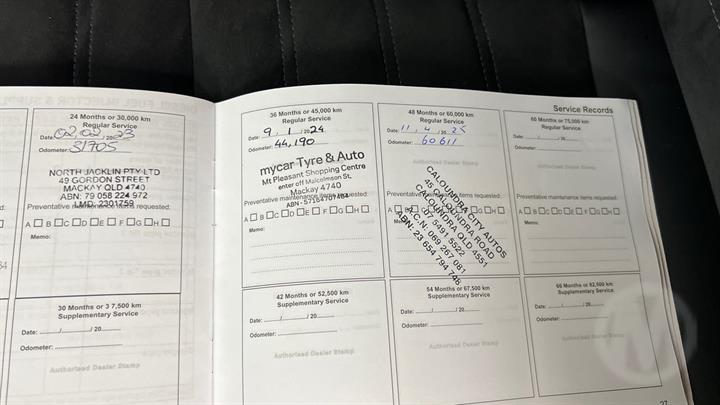 Service Records
24 Months or 30,000 km
Regular Service
Date: 02/02/2023
Odometer: 31705
NORTH JACKLIN PTY LTD
49 GORDON STREET
MACKAY QLD 4740
ABN: 79 058 224 972
LMD: 2301759
Preventative maintenance items requested:
A B C D E F G H
Memo:
30 Months or 3 7,500 km
Supplementary Service
Date: / / 20
Odometer:
Authorised Dealer Stamp
36 Months or 45,000 km
Regular Service
Date: 9 / 1 / 2024
Odometer: 44,190
mycar Tyre & Auto
Mt Pleasant Shopping Centre
enter off Malcolmson St.
Mackay 4740
ABN - 57164707464
Preventative maintenance items requested:
A B C D E F G H
Memo:
42 Months or 52,500 km
Supplementary Service
Date: / / 20
Odometer:
Authorised Dealer Stamp
48 Months or 60,000 km
Regular Service
Date: 11 / 4 / 2025
Odometer: 60611
Authorised Dealer Stamp
CALOUNDRA CITY AUTOS
45 CALOUNDRA ROAD
CALOUNDRA QLD 4551
07 5491 5522
A.C.N: 069 267 081
ABN: 23 654 794 748
Preventative items requested:
A B G H
Memo:
54 Months or 67,500 km
Supplementary Service
Date: / / 20
Odometer:
Authorised Dealer Stamp
60 Months or 75,000 km
Regular Service
Date: / / 20
Odometer:
Authorised Dealer Stamp
Preventative maintenance items requested:
A B C D E F G H
Memo:
66 Months or 82,500 km
Supplementary Service
Date: / / 20
Odometer:
Authorised Dealer Stamp
27